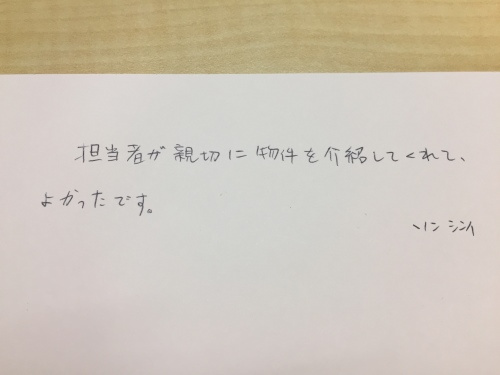 担当者が親切に物件を介紹してくれて、
よかったです。
ソン シンイ